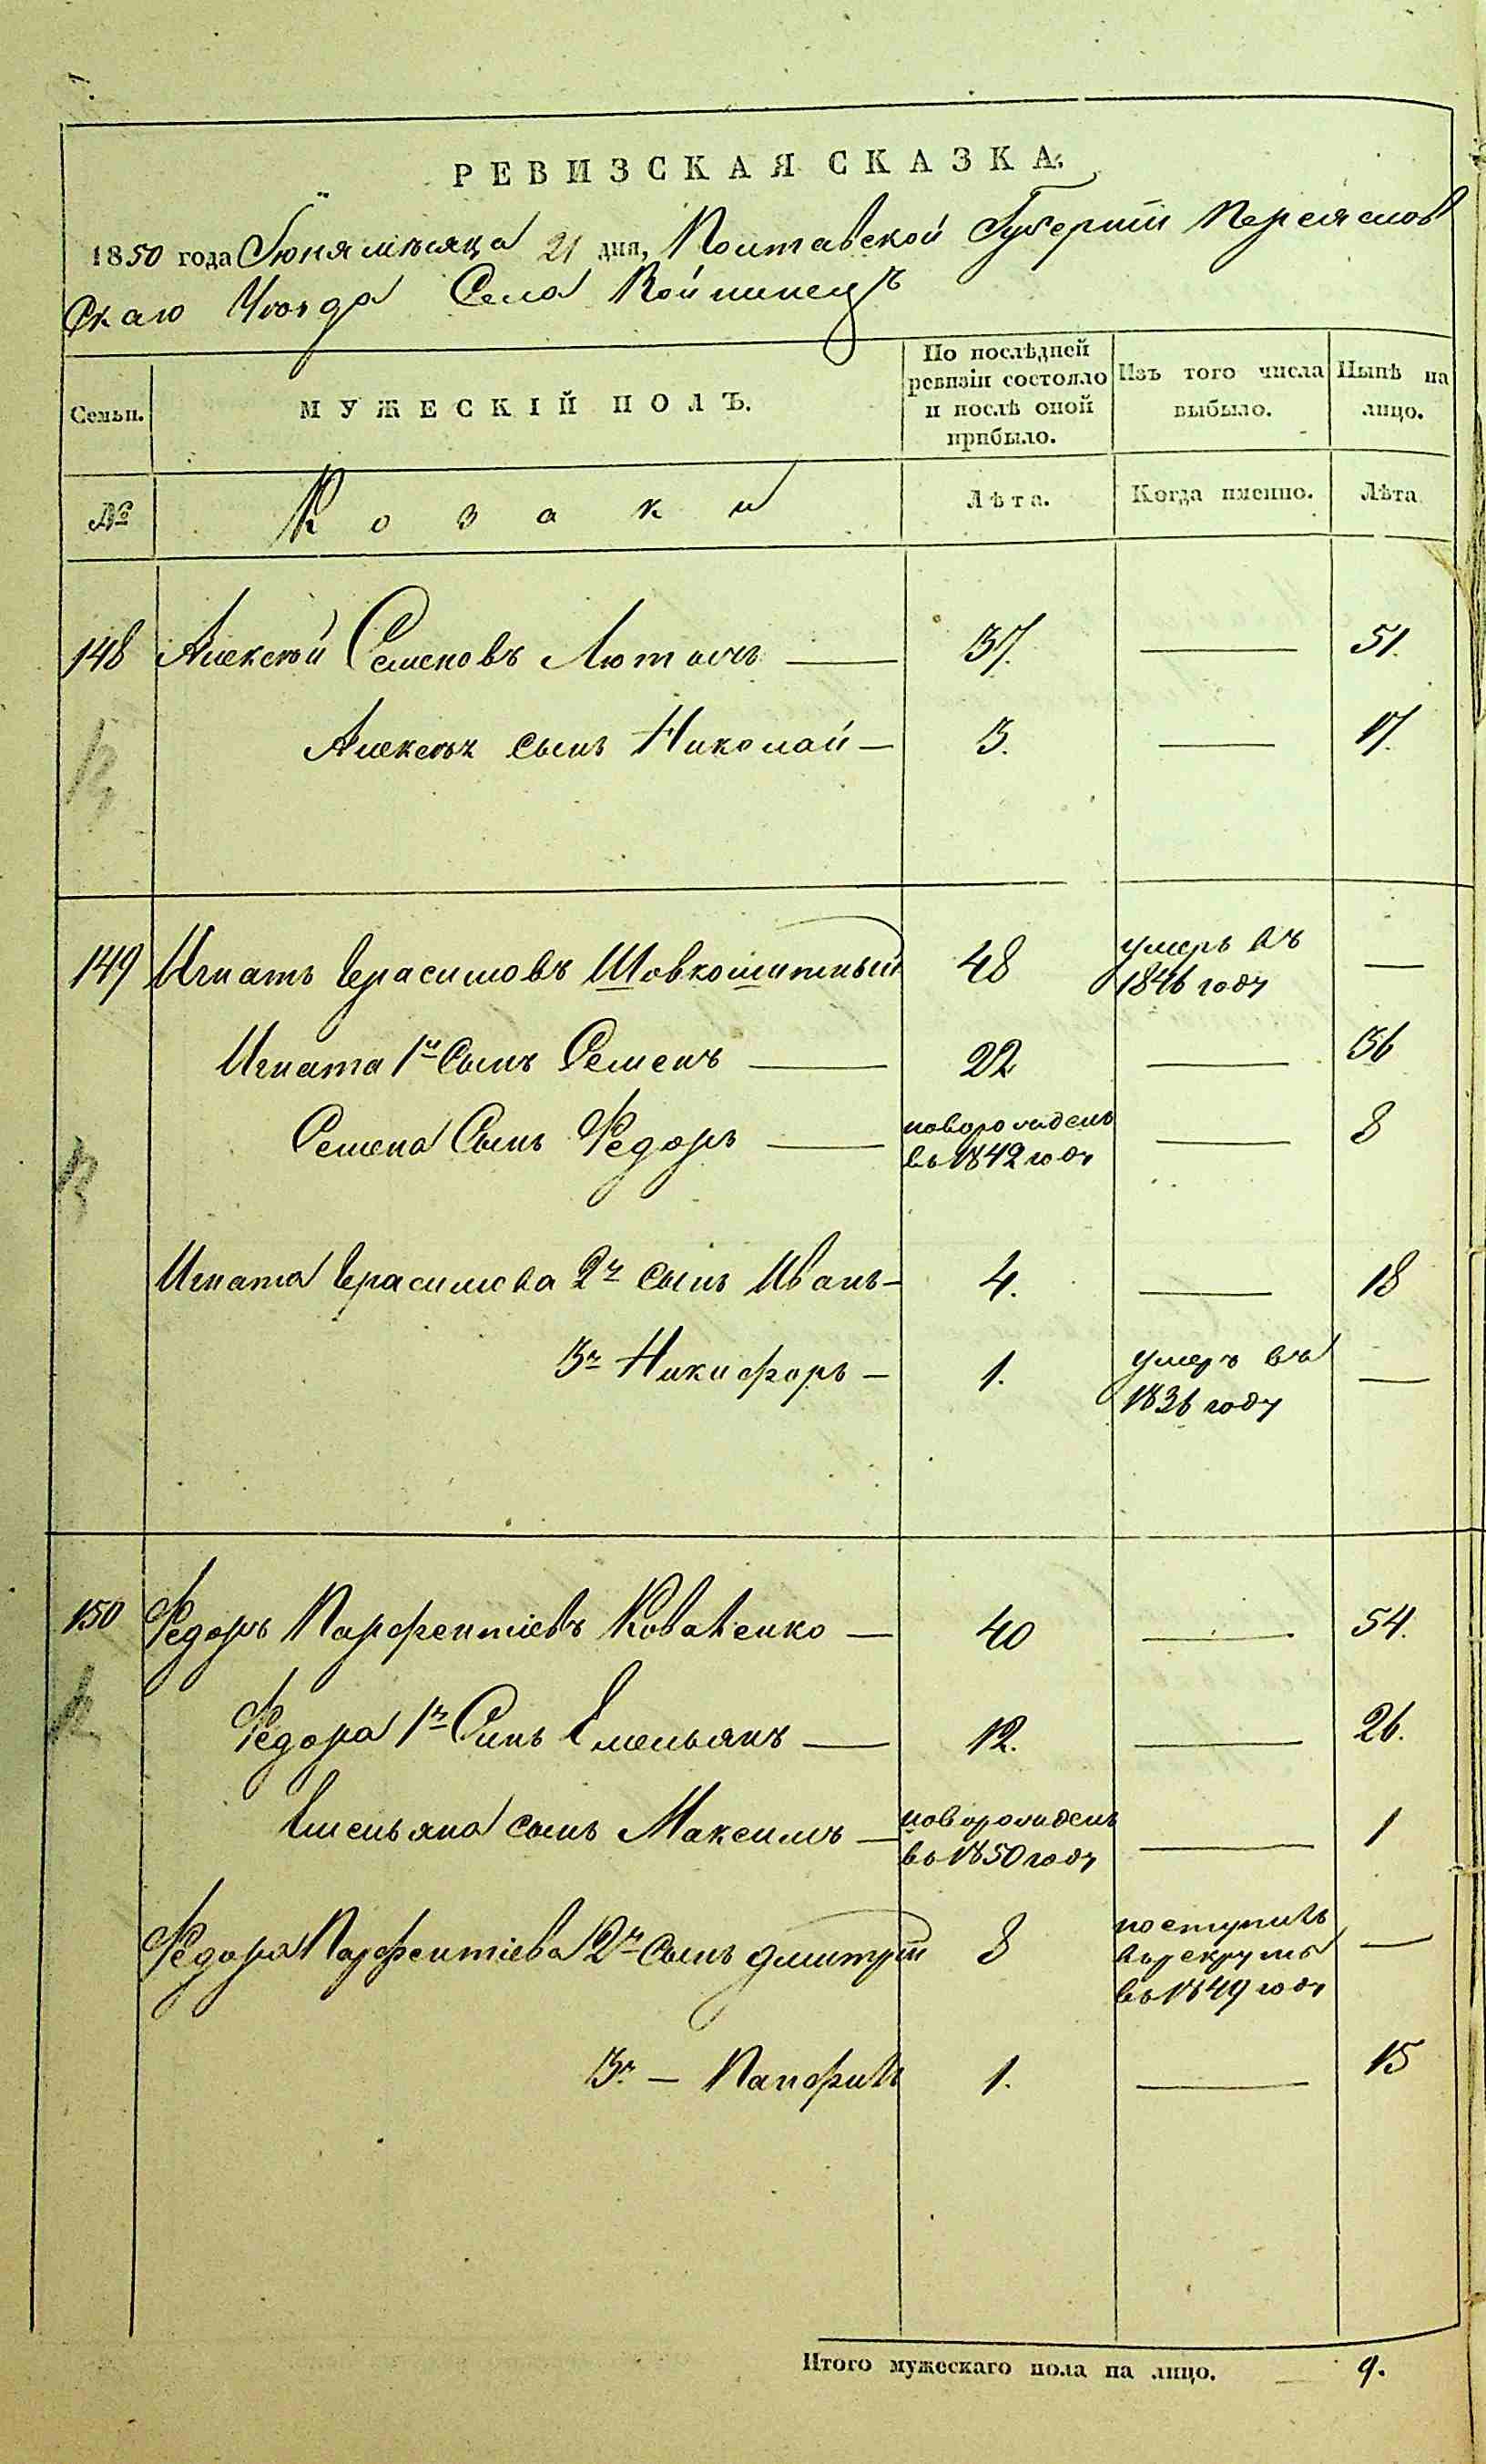 РЕВИЗСКАЯ СКАЗКА.
1850 года Іюня мѣсяца 21 дня, Полтавской Губерніи Переяслов
скаго Уѣзда Села Войнинецъ
Семьи. МУЖЕСКІЙ ПОЛЪ. По послѣдней ревизіи состояло и послѣ оной прибыло. Изъ того числа выбыло. Нынѣ на лицо.
№ Козаки Лѣта. Когда именно. Лѣта
148 Алексѣй Семеновъ Лютый — 37. — 51.
Алексѣя сынъ Николай — 3. — 17.
149 Игнатъ Герасимовъ Шовкошитный 48 умеръ въ 1846 году —
Игната 1й Сынъ Семенъ — 22 — 36
Семена Сынъ Федоръ — новорожденъ въ 1842 году — 8
Игната Герасимова 2й сынъ Иванъ — 4. — 18
3й Никифоръ — 1. умеръ въ 1836 году —
150 Федоръ Парфентіевъ Коваленко — 40 — 54.
Федора 1й Синъ Емельянъ — 12. — 26.
Емельяна сынъ Максимъ — новорожденъ въ 1850 году — 1
Федора Парфентіева 2й Сынъ Дмитрій 8 поступилъ въ рекруты въ 1849 году —
3й — Панфилъ 1. — 15
Итого мужескаго пола на лицо. 9.